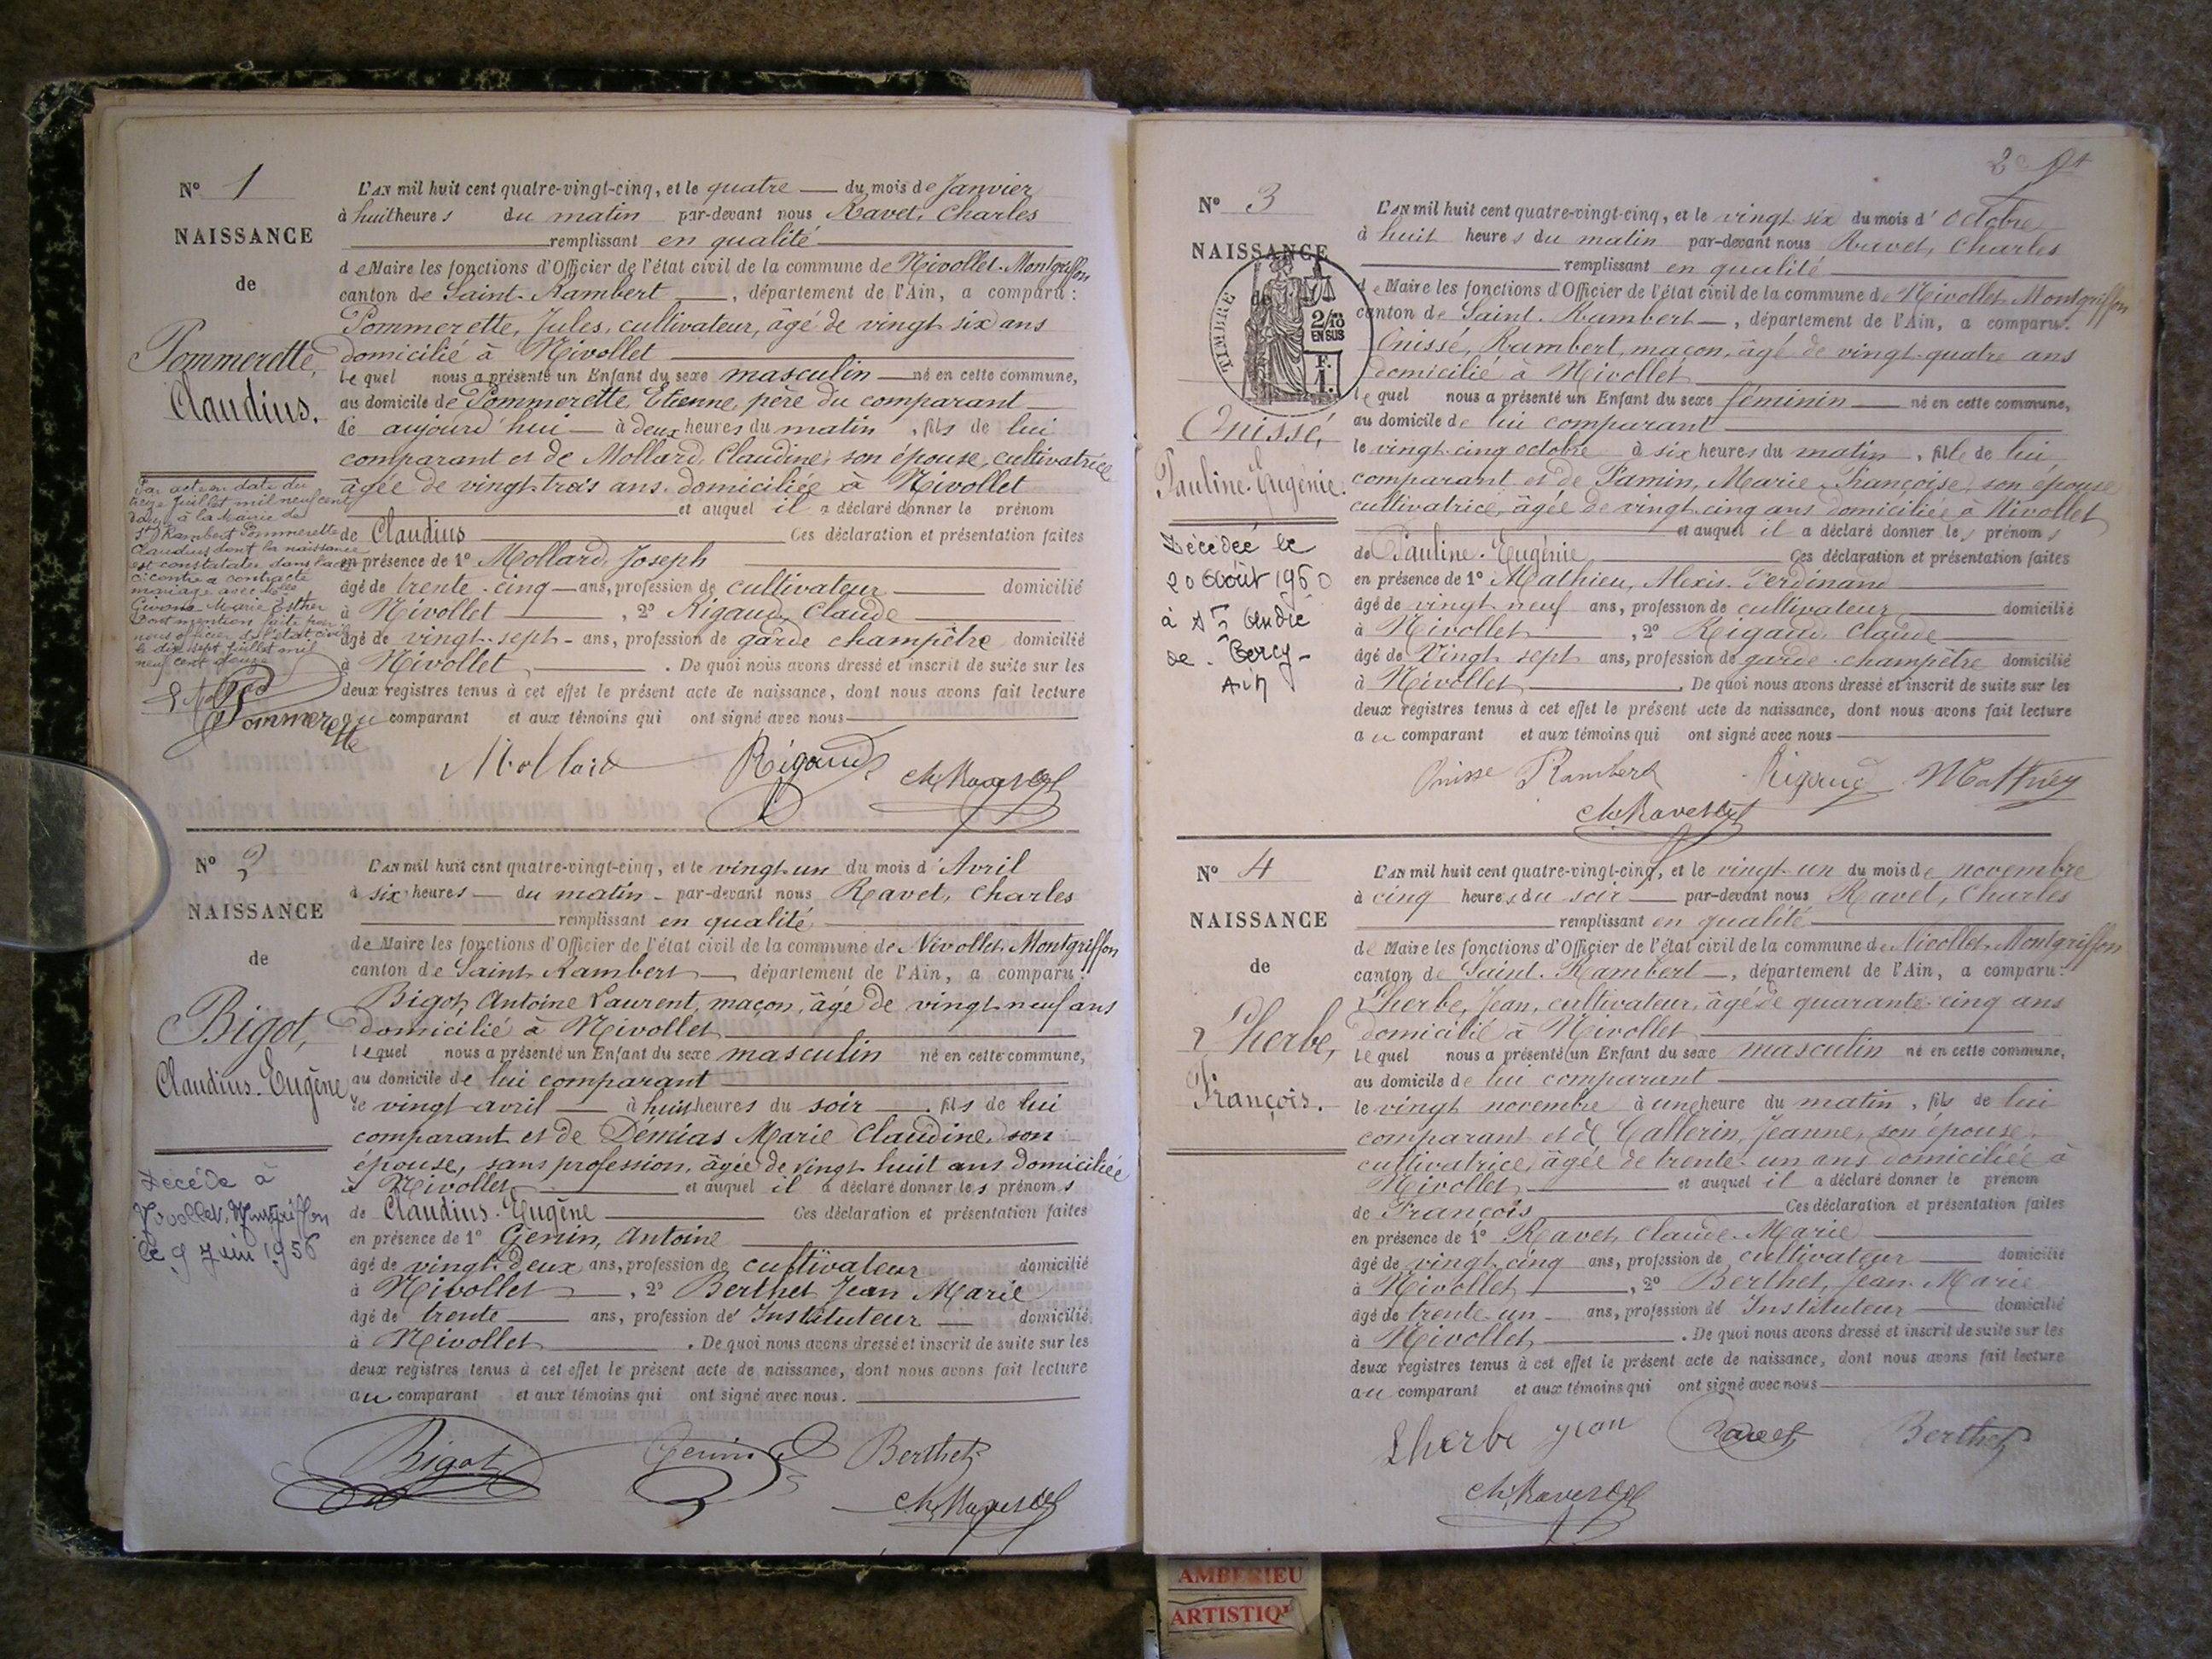 N° 1
NAISSANCE
de
Pommerette,
Claudius.
L'AN mil huit cent quatre-vingt-cinq, et le quatre du mois de Janvier
à huit heures du matin par-devant nous Ravet, Charles
remplissant en qualité
de Maire les fonctions d'Officier de l'état civil de la commune de Nivollet-Montgriffon
canton de Saint-Rambert, département de l'Ain, a comparu :
Pommerette, Jules, cultivateur, âgé de vingt six ans
domicilié à Nivollet
lequel nous a présenté un Enfant du sexe masculin né en cette commune,
au domicile de Pommerette, Etienne, père du comparant
le aujourd'hui à deux heures du matin, fils de lui
comparant et de Mollard, Claudine, son épouse, cultivatrice
âgée de vingt-trois ans domiciliée à Nivollet
et auquel il a déclaré donner le prénom
de Claudius Ces déclaration et présentation faites
en présence de 1° Mollard, Joseph
âgé de trente-cinq ans, profession de cultivateur domicilié
à Nivollet, 2° Rigaud, Claude
âgé de vingt-sept ans, profession de garde champêtre domicilié
à Nivollet. De quoi nous avons dressé et inscrit de suite sur les
deux registres tenus à cet effet le présent acte de naissance, dont nous avons fait lecture
au comparant et aux témoins qui ont signé avec nous
Par acte en date du
treize Juillet mil neuf cent
douze à la Mairie de
St Rambert Pommerette
Claudius dont la naissance
est constatée dans l'acte
ci contre a contracté
mariage avec Melle
Marie Esther
Dont mention faite par
nous officier de l'état civil
le dix sept juillet mil
neuf cent douze
Pommerette
Mollard Rigaud Ch. Ravet
N° 2
NAISSANCE
de
Bigot,
Claudius-Eugène
L'AN mil huit cent quatre-vingt-cinq, et le vingt-un du mois d'Avril
à six heures du matin par-devant nous Ravet, Charles
remplissant en qualité
de Maire les fonctions d'Officier de l'état civil de la commune de Nivollet-Montgriffon
canton de Saint-Rambert département de l'Ain, a comparu :
Bigot, Antoine Laurent, maçon, âgé de vingt neuf ans
domicilié à Nivollet
lequel nous a présenté un Enfant du sexe masculin né en cette commune,
au domicile de lui comparant
le vingt avril à huit heures du soir, fils de lui
comparant et de Démias Marie Claudine, son
épouse, sans profession, âgée de vingt huit ans domiciliée
à Nivollet et auquel il a déclaré donner les prénoms
de Claudius-Eugène Ces déclaration et présentation faites
en présence de 1° Genin, Antoine
âgé de vingt-deux ans, profession de cultivateur domicilié
à Nivollet, 2° Berthet Jean Marie
âgé de trente ans, profession d'Instituteur domicilié
à Nivollet. De quoi nous avons dressé et inscrit de suite sur les
deux registres tenus à cet effet le présent acte de naissance, dont nous avons fait lecture
au comparant et aux témoins qui ont signé avec nous.
Décédé à
Nivollet-Montgriffon
le 9 Juin 1956
Bigot Genin Berthet
Ch. Ravet
N° 3
NAISSANCE
de
TIMBRE
2/10
EN SUS
F.
1.
Onissé,
Pauline-Eugénie.
L'AN mil huit cent quatre-vingt-cinq, et le vingt six du mois d'octobre
à huit heures du matin par-devant nous Ravet, Charles
remplissant en qualité
de Maire les fonctions d'Officier de l'état civil de la commune de Nivollet-Montgriffon
canton de Saint-Rambert, département de l'Ain, a comparu :
Onissé, Rambert, maçon, âgé de vingt-quatre ans
domicilié à Nivollet
lequel nous a présenté un Enfant du sexe féminin né en cette commune,
au domicile de lui comparant
le vingt-cinq octobre à six heures du matin, fille de lui
comparant et de Pamin, Marie Françoise, son épouse
cultivatrice, âgée de vingt cinq ans domiciliée à Nivollet
et auquel il a déclaré donner les prénoms
de Pauline-Eugénie Ces déclaration et présentation faites
en présence de 1° Mathieu, Alexis Ferdinand
âgé de vingt neuf ans, profession de cultivateur domicilié
à Nivollet, 2° Rigaud, Claude
âgé de Vingt sept ans, profession de garde-champêtre domicilié
à Nivollet. De quoi nous avons dressé et inscrit de suite sur les
deux registres tenus à cet effet le présent acte de naissance, dont nous avons fait lecture
au comparant et aux témoins qui ont signé avec nous
Décédée le
20 Août 1960
à St André
de
Ain
Onisse Rambert Rigaud Mathieu
Ch. Ravet
N° 4
NAISSANCE
de
Lherbe,
François.
L'AN mil huit cent quatre-vingt-cinq, et le vingt-un du mois de novembre
à cinq heures du soir par-devant nous Ravet, Charles
remplissant en qualité
de Maire les fonctions d'Officier de l'état civil de la commune de Nivollet-Montgriffon
canton de Saint-Rambert, département de l'Ain, a comparu :
Lherbe, Jean, cultivateur, âgé de quarante-cinq ans
domicilié à Nivollet
lequel nous a présenté un Enfant du sexe masculin né en cette commune,
au domicile de lui comparant
le vingt novembre à une heure du matin, fils de lui
comparant et de Gallerin, Jeanne, son épouse,
cultivatrice, âgée de trente-un ans domiciliée à
Nivollet et auquel il a déclaré donner le prénom
de François Ces déclaration et présentation faites
en présence de 1° Ravet, Claude-Marie
âgé de vingt cinq ans, profession de cultivateur domicilié
à Nivollet, 2° Berthet, Jean-Marie
âgé de trente-un ans, profession d'Instituteur domicilié
à Nivollet. De quoi nous avons dressé et inscrit de suite sur les
deux registres tenus à cet effet le présent acte de naissance, dont nous avons fait lecture
au comparant et aux témoins qui ont signé avec nous
Lherbe Jean Ravet Berthet
Ch. Ravet
AMBERIEU
ARTISTIQ